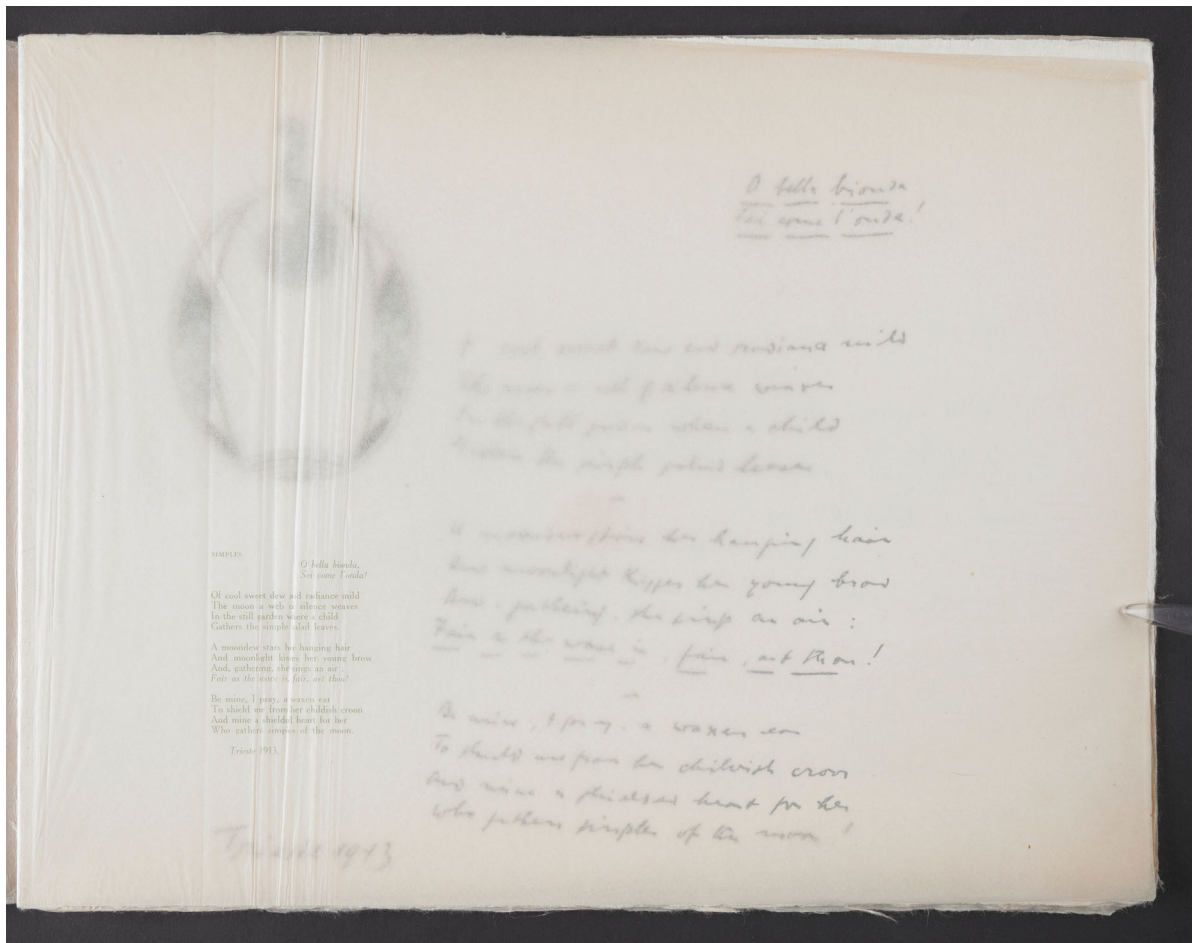 SIMPLES
O bella bionda,
Sei come l'onda!
Of cool sweet dew and radiance mild
The moon a web of silence weaves
In the still garden where a child
Gathers the simple salad leaves.
A moondew stars her hanging hair
And moonlight kisses her young brow
And, gathering, she sings an air:
Fair as the wave is, fair, art thou!
Be mine, I pray, a waxen ear
To shield me from her childish croon
And mine a shielded heart for her
Who gathers simples of the moon.
Trieste 1913.
O bella bionda
Sei come l'onda!
Of cool sweet dew and radiance mild
The moon a web of silence weaves
In the still garden where a child
Gathers the simple salad leaves
A moondew stars her hanging hair
And moonlight kisses her young brow
And, gathering, she sings an air:
Fair as the wave is, fair, art thou!
Be mine, I pray, a waxen ear
To shield me from her childish croon
And mine a shielded heart for her
Who gathers simples of the moon!
Trieste 1913